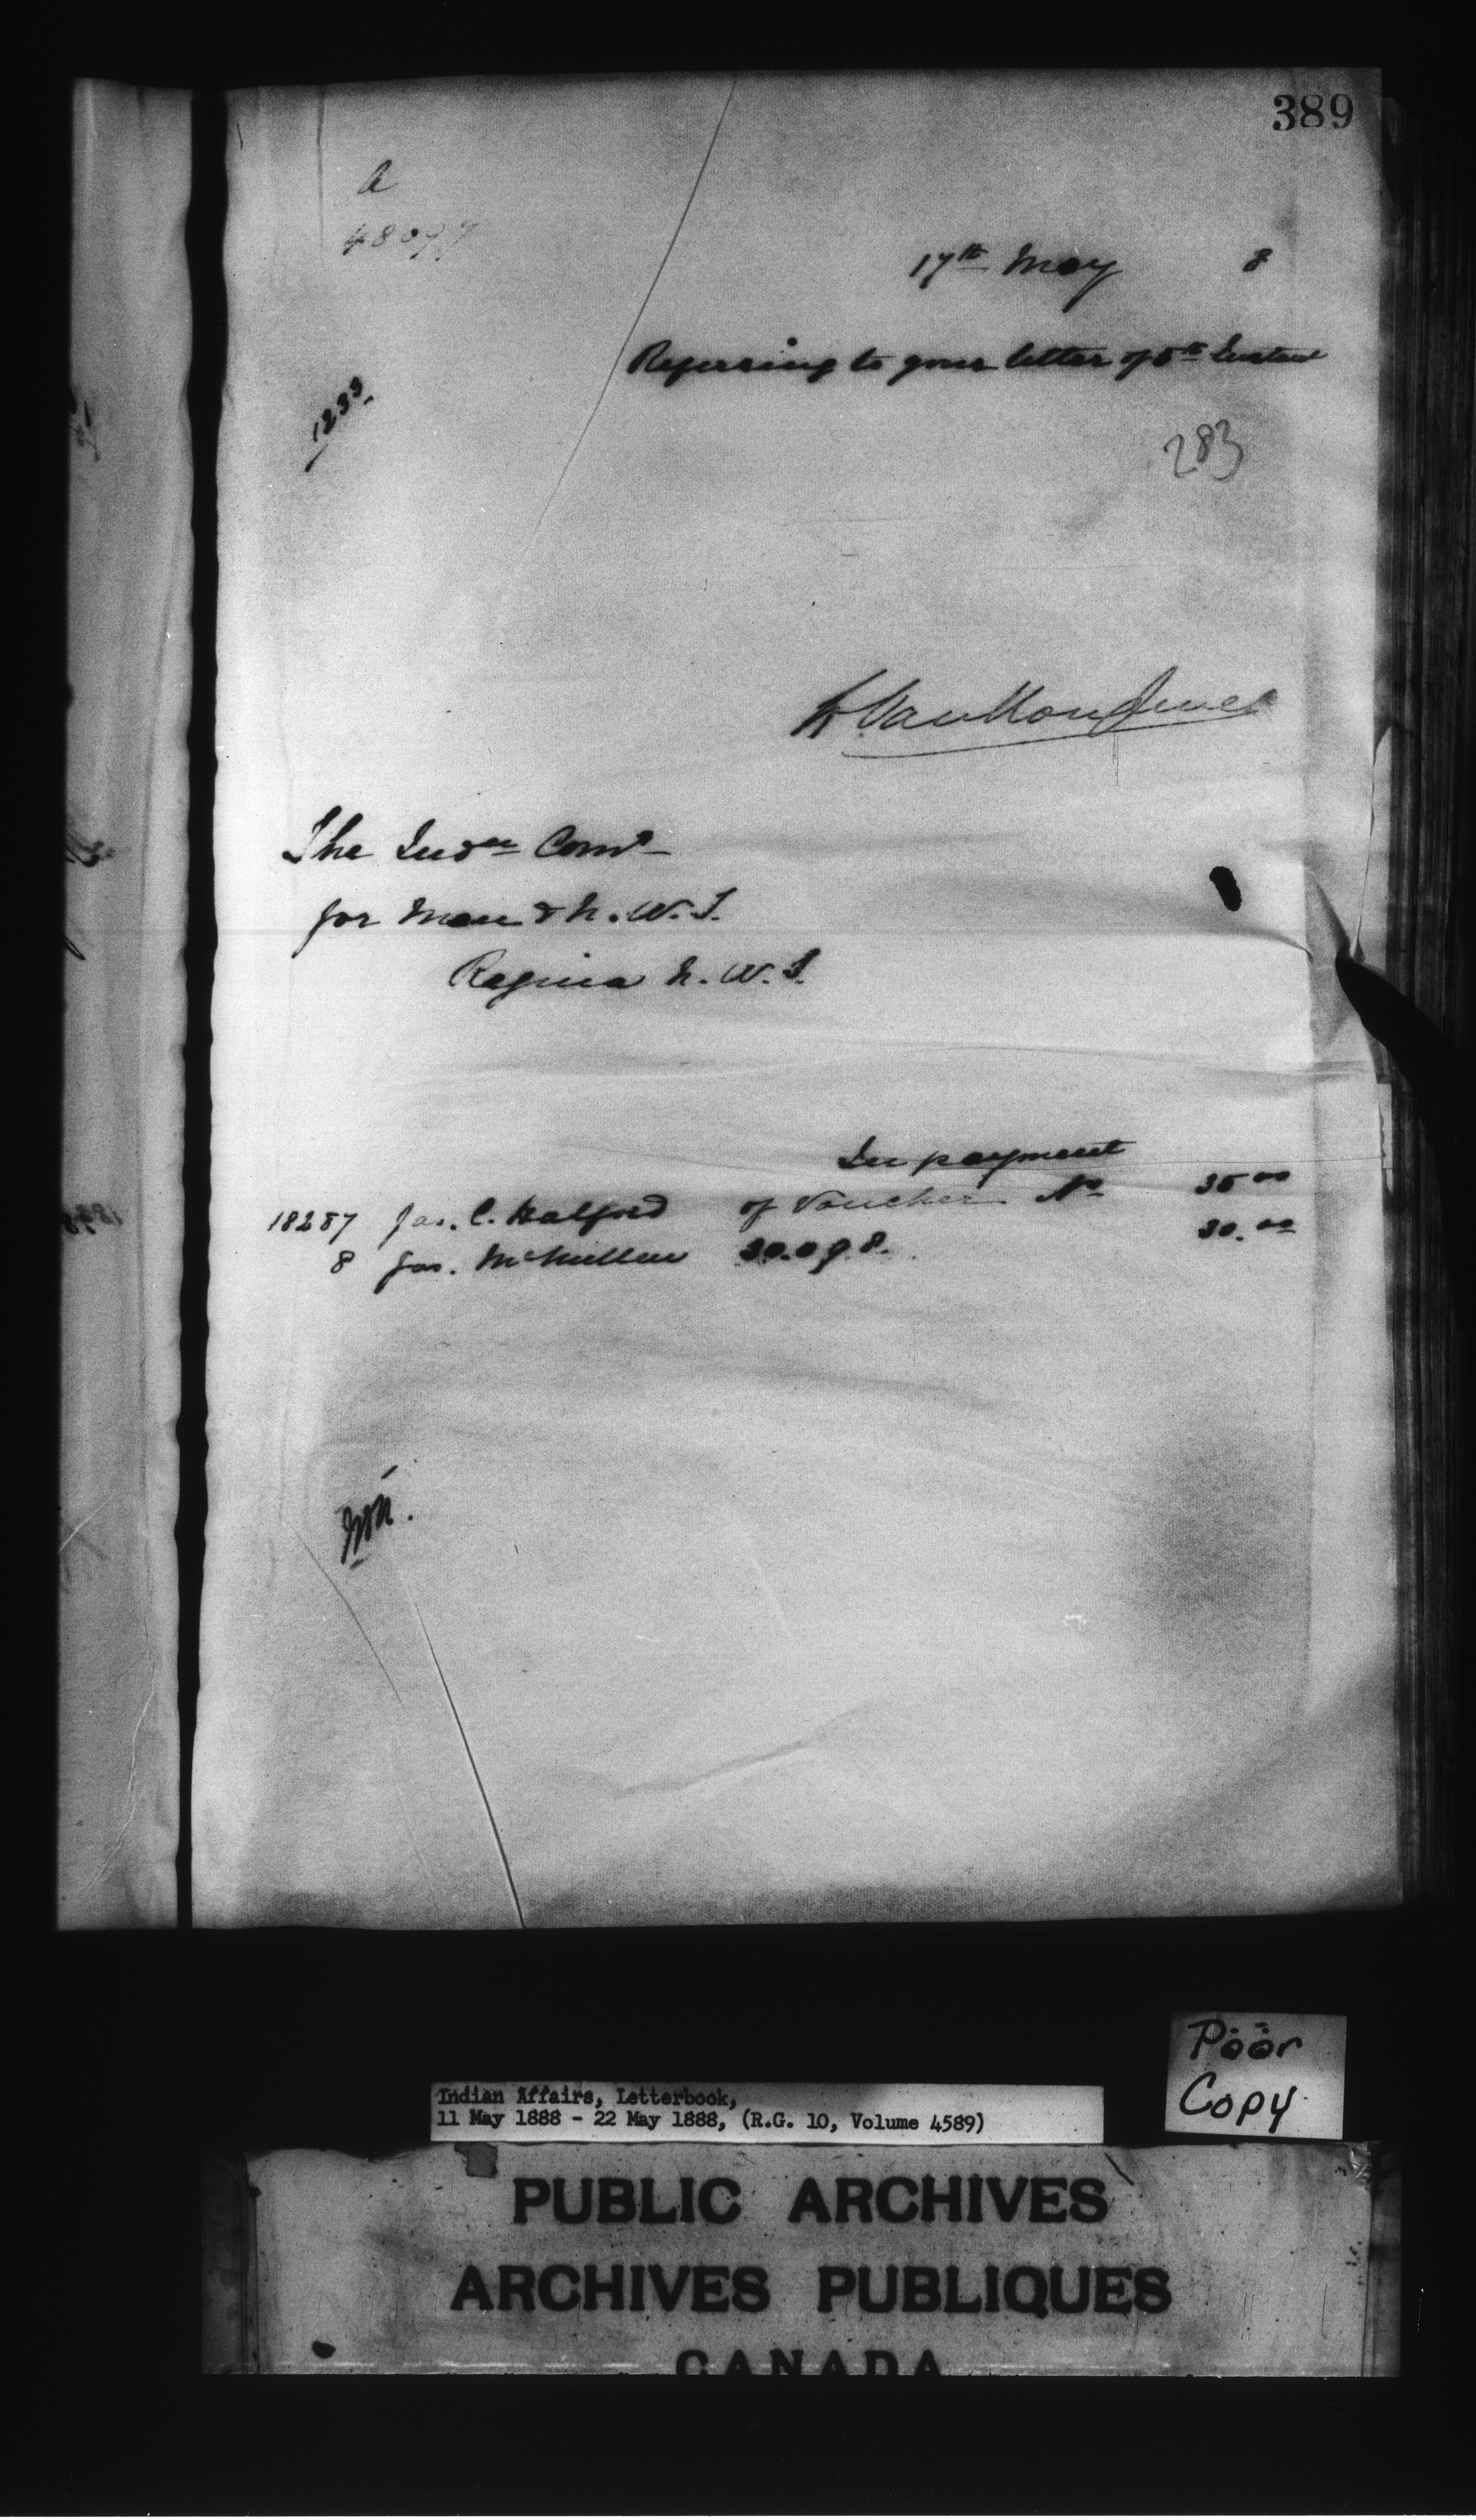 389
A
48097
17th May 8
Referring to your letter of 5th Instant
1233.
283
The Indn Comr
for Man & N.W.T.
Regina N.W.T.
In payment
18287 Jas. C. Halford of Voucher No 35 00
8 Jas. McMullen 30. 00
Poor
Copy
Indian Affairs, Letterbook,
11 May 1888 - 22 May 1888, (R.G. 10, Volume 4589)
PUBLIC ARCHIVES
ARCHIVES PUBLIQUES
CANADA